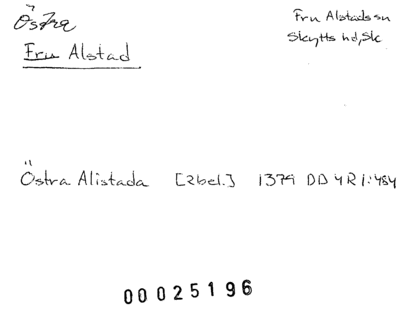 Östra
Fru Alstad
Fru Alstads sn
Skytts hd, Sk
Östra Alistada [2 bel.] 1379 DD 4R 1:484
00025196